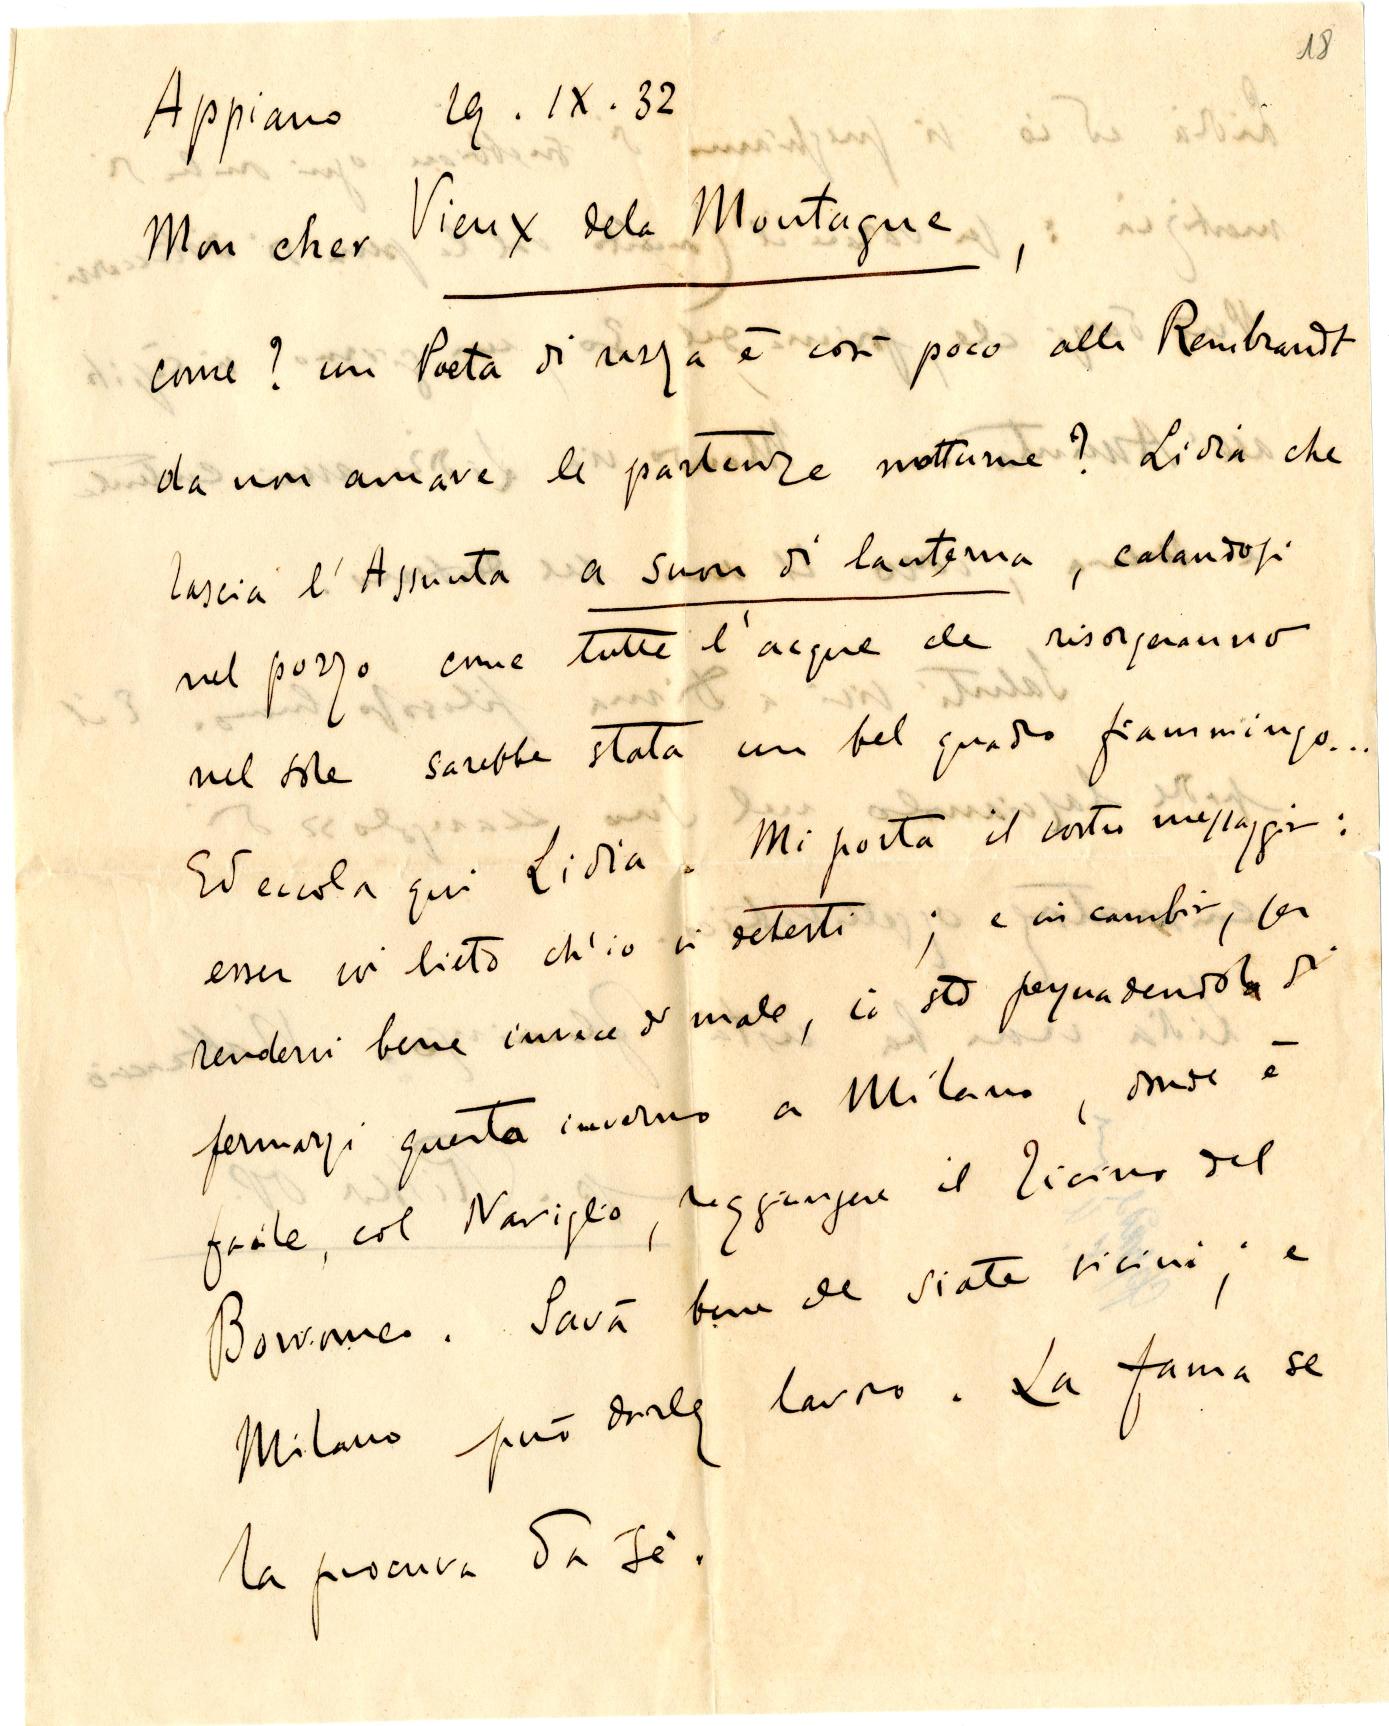 18
Appiano 29. IX. 32
Mon cher Vieux de la Montagne,
come? un Poeta di razza è così poco alla Rembrandt
da non amare le partenze notturne? Lidia che
lascia l'Assunta a suon di lanterna, calandosi
nel pozzo come tutte l'acque che risorgeranno
nel sole sarebbe stata un bel quadro fiammingo...
Ed eccola qui Lidia. Mi porta il vostro messaggio:
esser voi lieto ch'io vi detesti; e in cambio, per
rendervi bene invece di male, io sto persuadendola di
fermarsi questo inverno a Milano, donde è
facile, col Naviglio, raggiungere il Ticino del
Borromeo. Sarà bene che siate vicini; e
Milano può darle lavoro. La fama se
la procura da sé.